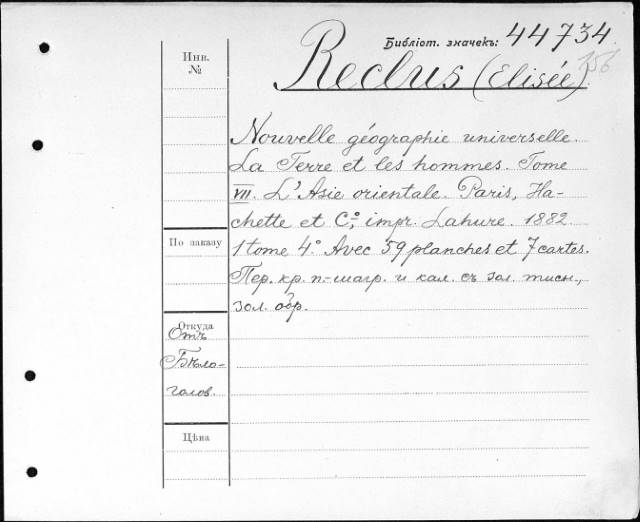 Библіот. значекъ: 44734
Инв. №
Reclus (Elisée)
Nouvelle géographie universelle.
La Terre et les hommes. Tome
VII. L'Asie orientale. Paris, Ha-
chette et Cº, impr. Lahure. 1882.
По заказу
1 tome 4º. Avec 59 planches et 7 cartes.
Пер. кр. п.-шагр. и кал. съ зол. тисн.,
зол. обр.
Откуда
Отъ
Бѣло-
голов.
Цѣна